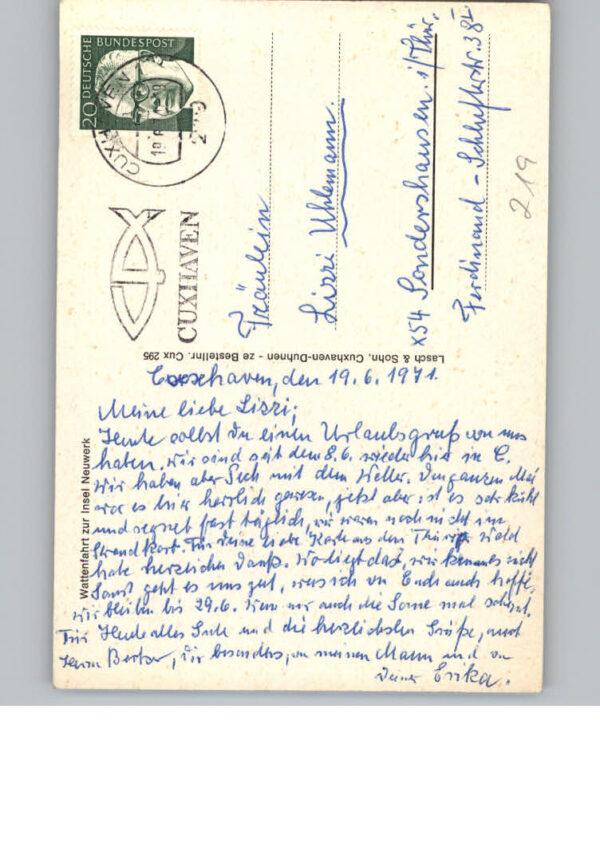 20 DEUTSCHE BUNDESPOST
CUXHAVEN
219
CUXHAVEN
Fräulein
Lizzi Uhlemann.
X54 Sondershausen i/Thür.
Ferdinand-Schlufterstr. 38 I
219
Lasch & Sohn, Cuxhaven-Duhnen - ze Bestellnr. Cux 295
Wattenfahrt zur Insel Neuwerk
Cuxhaven, den 19.6.1971.
Meine liebe Lizzi;
Heute sollst Du einen Urlaubsgruß von uns
haben. Wir sind seit dem 8.6. wieder hier in C.
Wir haben aber Pech mit dem Wetter. Den ganzen Mai
war es hier herrlich gewesen, jetzt aber ist es sehr kühl
und regnet fast täglich, wir waren noch nicht im
Strandkorb. Für Deine liebe Karte aus dem Thüring. Wald
habe herzlichen Dank. Wo liegt das, wir kennen es nicht
Sonst geht es uns gut, was ich von Euch auch hoffe,
wir bleiben bis 29.6. Wenn nur auch die Sonne mal scheint.
Für Heute alles Gute und die herzlichsten Grüße, auch
Herrn, Dir besonders, von meinem Mann und von
Deiner Erika.